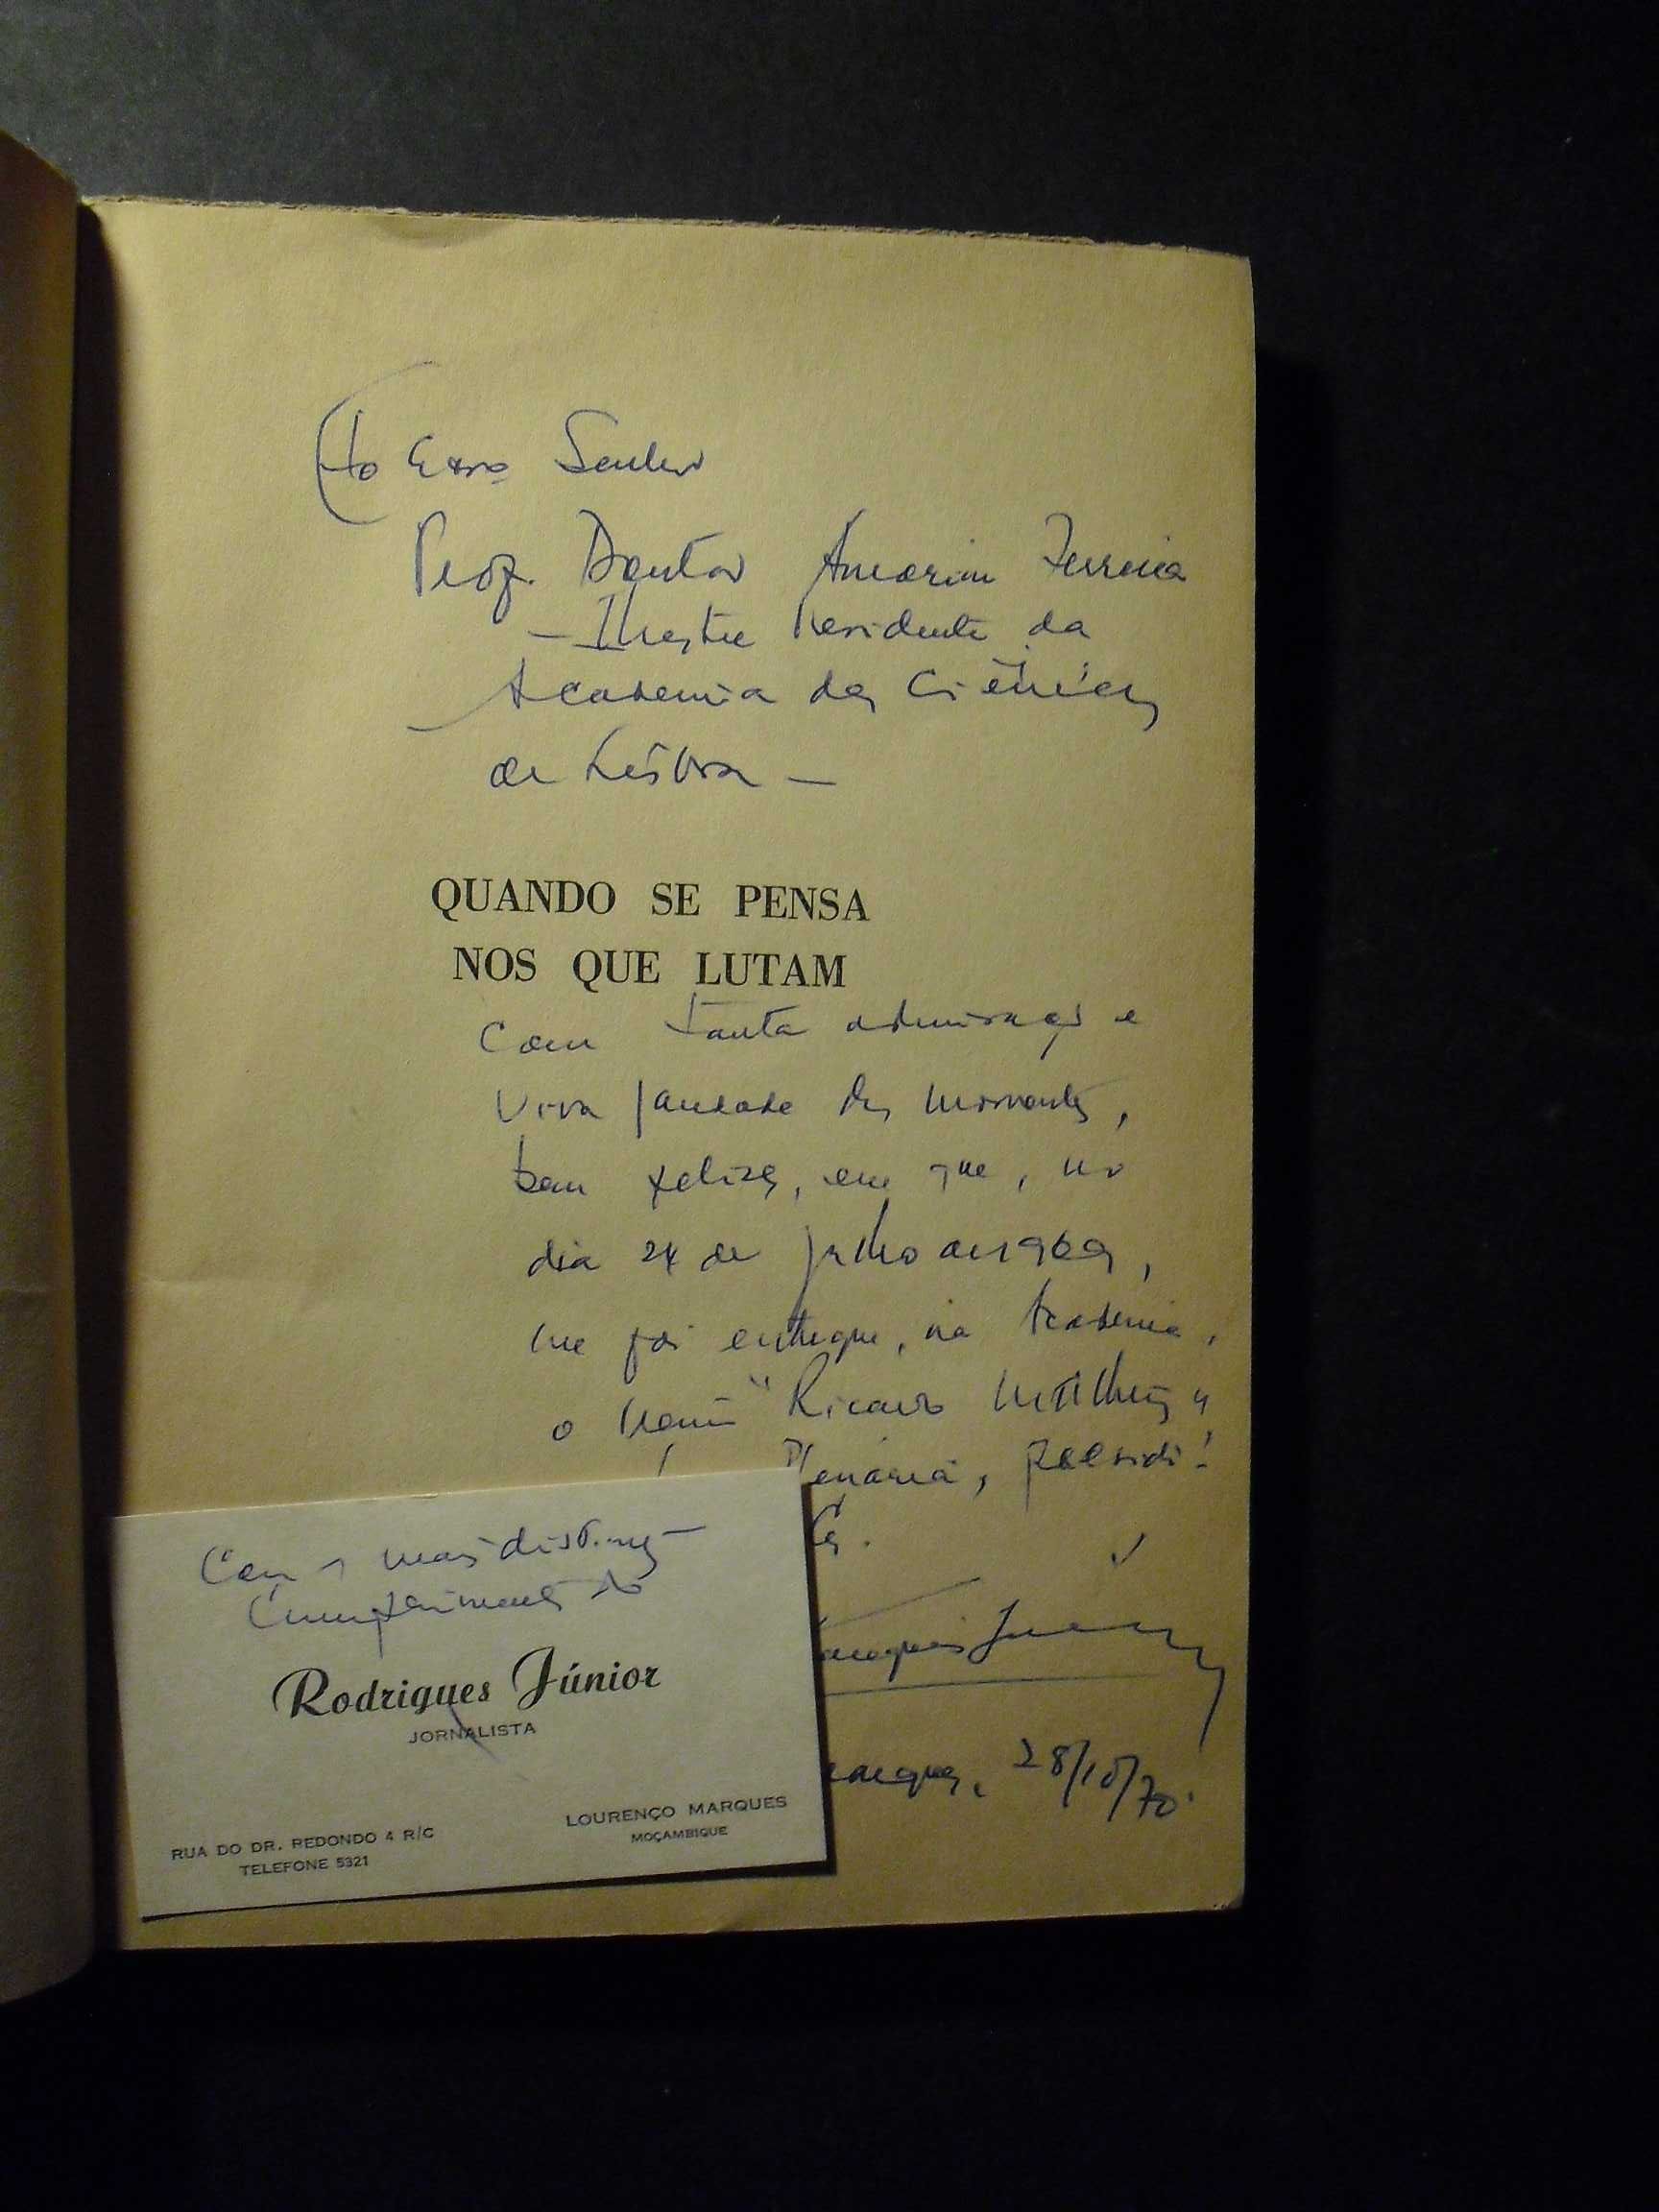 Ao Exmo Senhor
Prof. Doutor Amorim Ferreira
— Ilustre Presidente da
Academia das Ciências
de Lisboa —
QUANDO SE PENSA
NOS QUE LUTAM
Com tanta admiração e
viva saudade dos momentos,
bem felizes, em que, no
dia 24 de Julho de 1969,
me foi entregue, na Academia,
o Prémio "Ricardo Malheiros"
Plenária, presidi-
Júnior
28/10/70.
Com os mais distintos
cumprimentos do
Rodrigues Júnior
JORNALISTA
RUA DO DR. REDONDO 4 R/C
TELEFONE 5321
LOURENÇO MARQUES
MOÇAMBIQUE